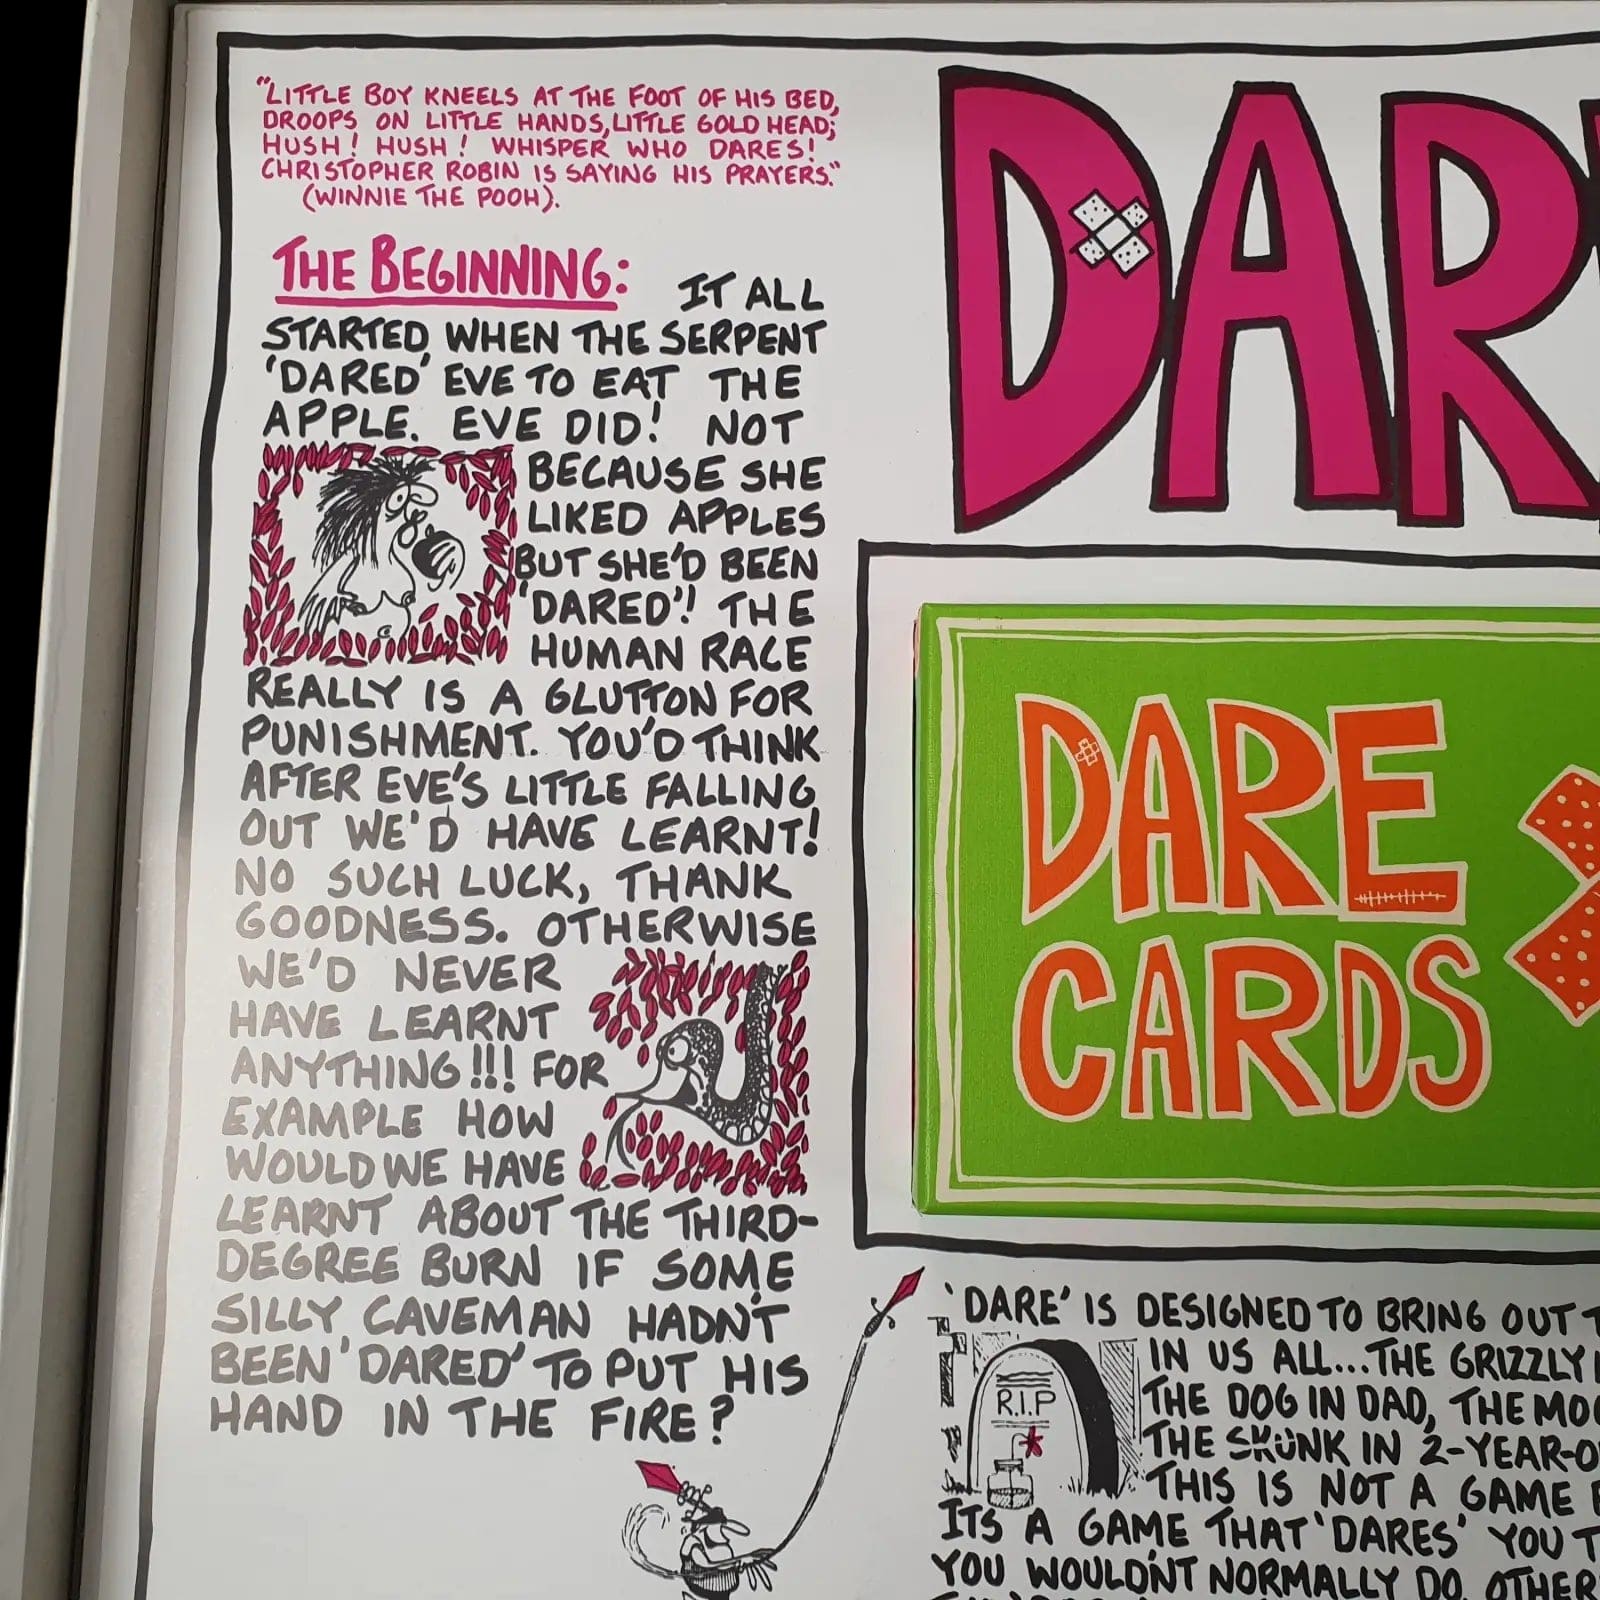 "LITTLE BOY KNEELS AT THE FOOT OF HIS BED,
DROOPS ON LITTLE HANDS, LITTLE GOLD HEAD;
HUSH! HUSH! WHISPER WHO DARES!
CHRISTOPHER ROBIN IS SAYING HIS PRAYERS."
(WINNIE THE POOH).
THE BEGINNING: IT ALL
STARTED WHEN THE SERPENT
'DARED' EVE TO EAT THE
APPLE. EVE DID! NOT
BECAUSE SHE
LIKED APPLES
BUT SHE'D BEEN
'DARED'! THE
HUMAN RACE
REALLY IS A GLUTTON FOR
PUNISHMENT. YOU'D THINK
AFTER EVE'S LITTLE FALLING
OUT WE'D HAVE LEARNT!
NO SUCH LUCK, THANK
GOODNESS. OTHERWISE
WE'D NEVER
HAVE LEARNT
ANYTHING!!! FOR
EXAMPLE HOW
WOULD WE HAVE
LEARNT ABOUT THE THIRD-
DEGREE BURN IF SOME
SILLY CAVEMAN HADN'T
BEEN 'DARED' TO PUT HIS
HAND IN THE FIRE?
DAR
DARE
CARDS
'DARE' IS DESIGNED TO BRING OUT
IN US ALL...THE GRIZZLY
THE DOG IN DAD, THE
THE SKUNK IN 2-YEAR-
THIS IS NOT A GAME
ITS A GAME THAT 'DARES' YOU
YOU WOULDN'T NORMALLY DO.
R.I.P